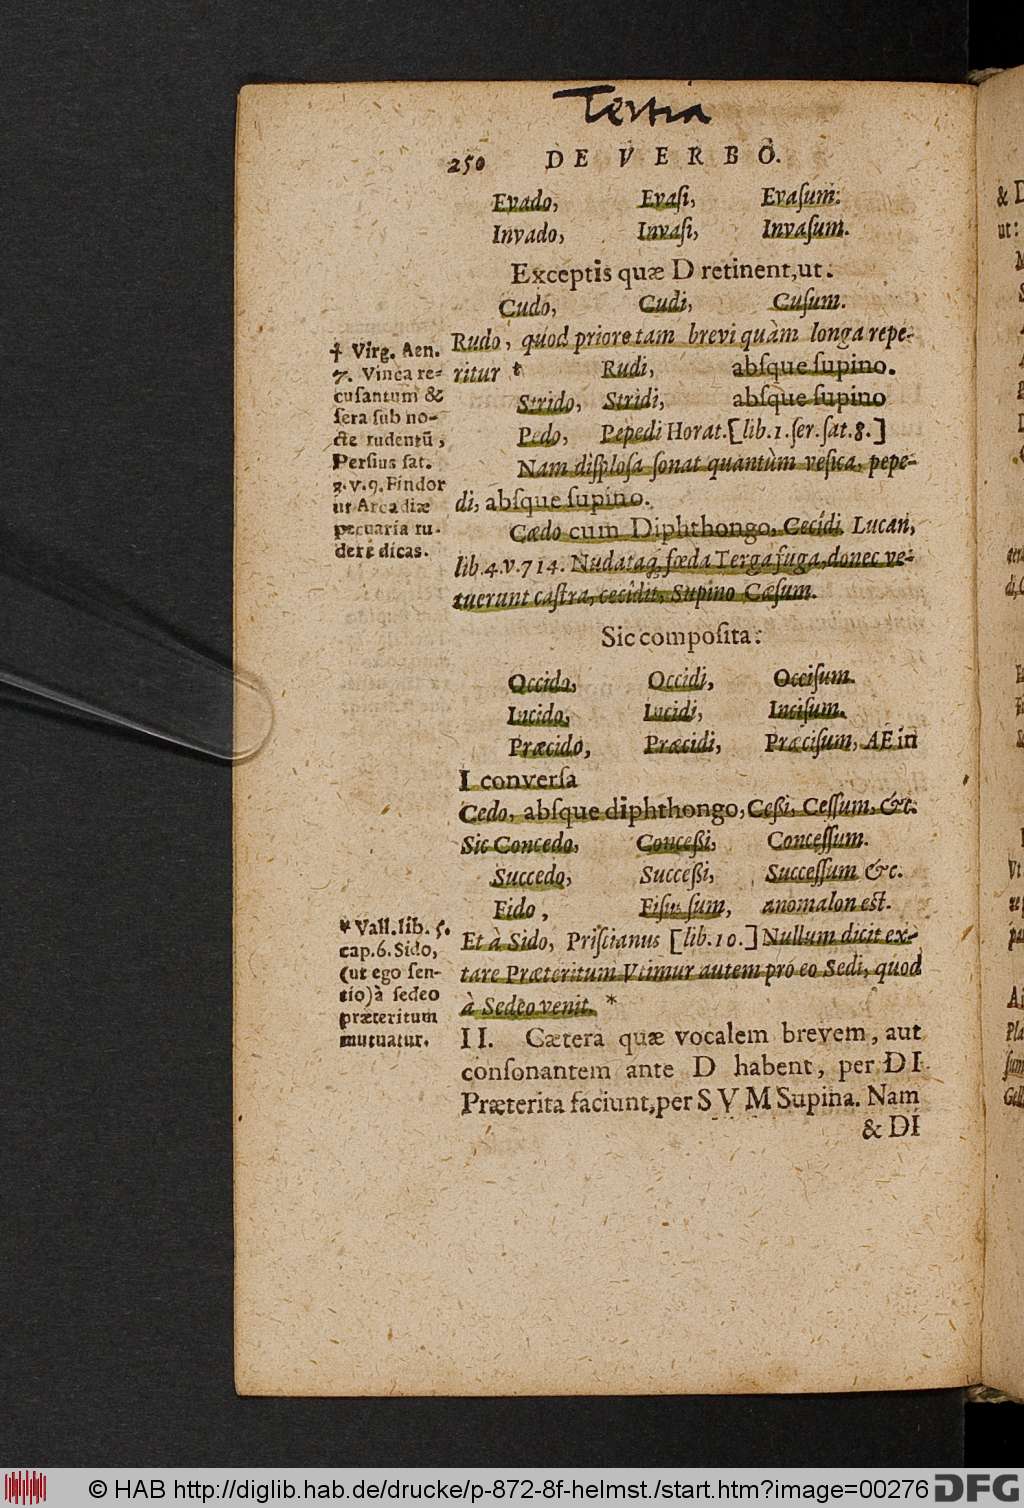 Tertia
250 DE VERBO.
Evado, Evasi, Evasum:
Invado, Invasi, Invasum.
Exceptis quæ D retinent, ut.
Cudo, Cudi, Cusum.
Rudo, quod priore tam brevi quàm longa repe-
ritur † Rudi, absque supino.
Strido, Stridi, absque supino
Pedo, Pepedi Horat. [lib. 1. ser. sat. 8.]
Nam displosa sonat quantùm vesica, pepe-
di, absque supino.
Cædo cum Diphthongo, Cecîdi Lucan,
lib. 4. v. 714. Nudataq; fœda Terga fuga, donec ve-
tuerunt castra, cecîdit, Supino Cæsum.
Sic composita:
Occido, Occidi, Occisum.
Incido, Incidi, Incisum.
Præcido, Præcidi, Præcisum, AE in
I conversa
Cedo, absque diphthongo, Ceßi, Cessum, &c.
Sic Concedo, Conceßi, Concessum.
Succedo, Succeßi, Successum &c.
Fido, Fisus sum, anomalon est.
Et à Sido, Priscianus [lib. 10.] Nullum dicit ex-
tare Præteritum Utimur autem pro eo Sedi, quod
à Sedeo venit. *
II. Cætera quæ vocalem brevem, aut
consonantem ante D habent, per DI
Præterita faciunt, per SVM Supina. Nam
& DI
† Virg. Aen.
7. Vincla re-
cusantum &
sera sub no-
cte rudentū,
Persius sat.
3. v. 9. Findor
ut Arcadiæ
pecuaria ru-
dere dicas.
* Vall. lib. 5.
cap. 6. Sido,
(ut ego sen-
tio) à sedeo
præteritum
mutuatur.
& D
ut:
© HAB http://diglib.hab.de/drucke/p-872-8f-helmst./start.htm?image=00276 DFG